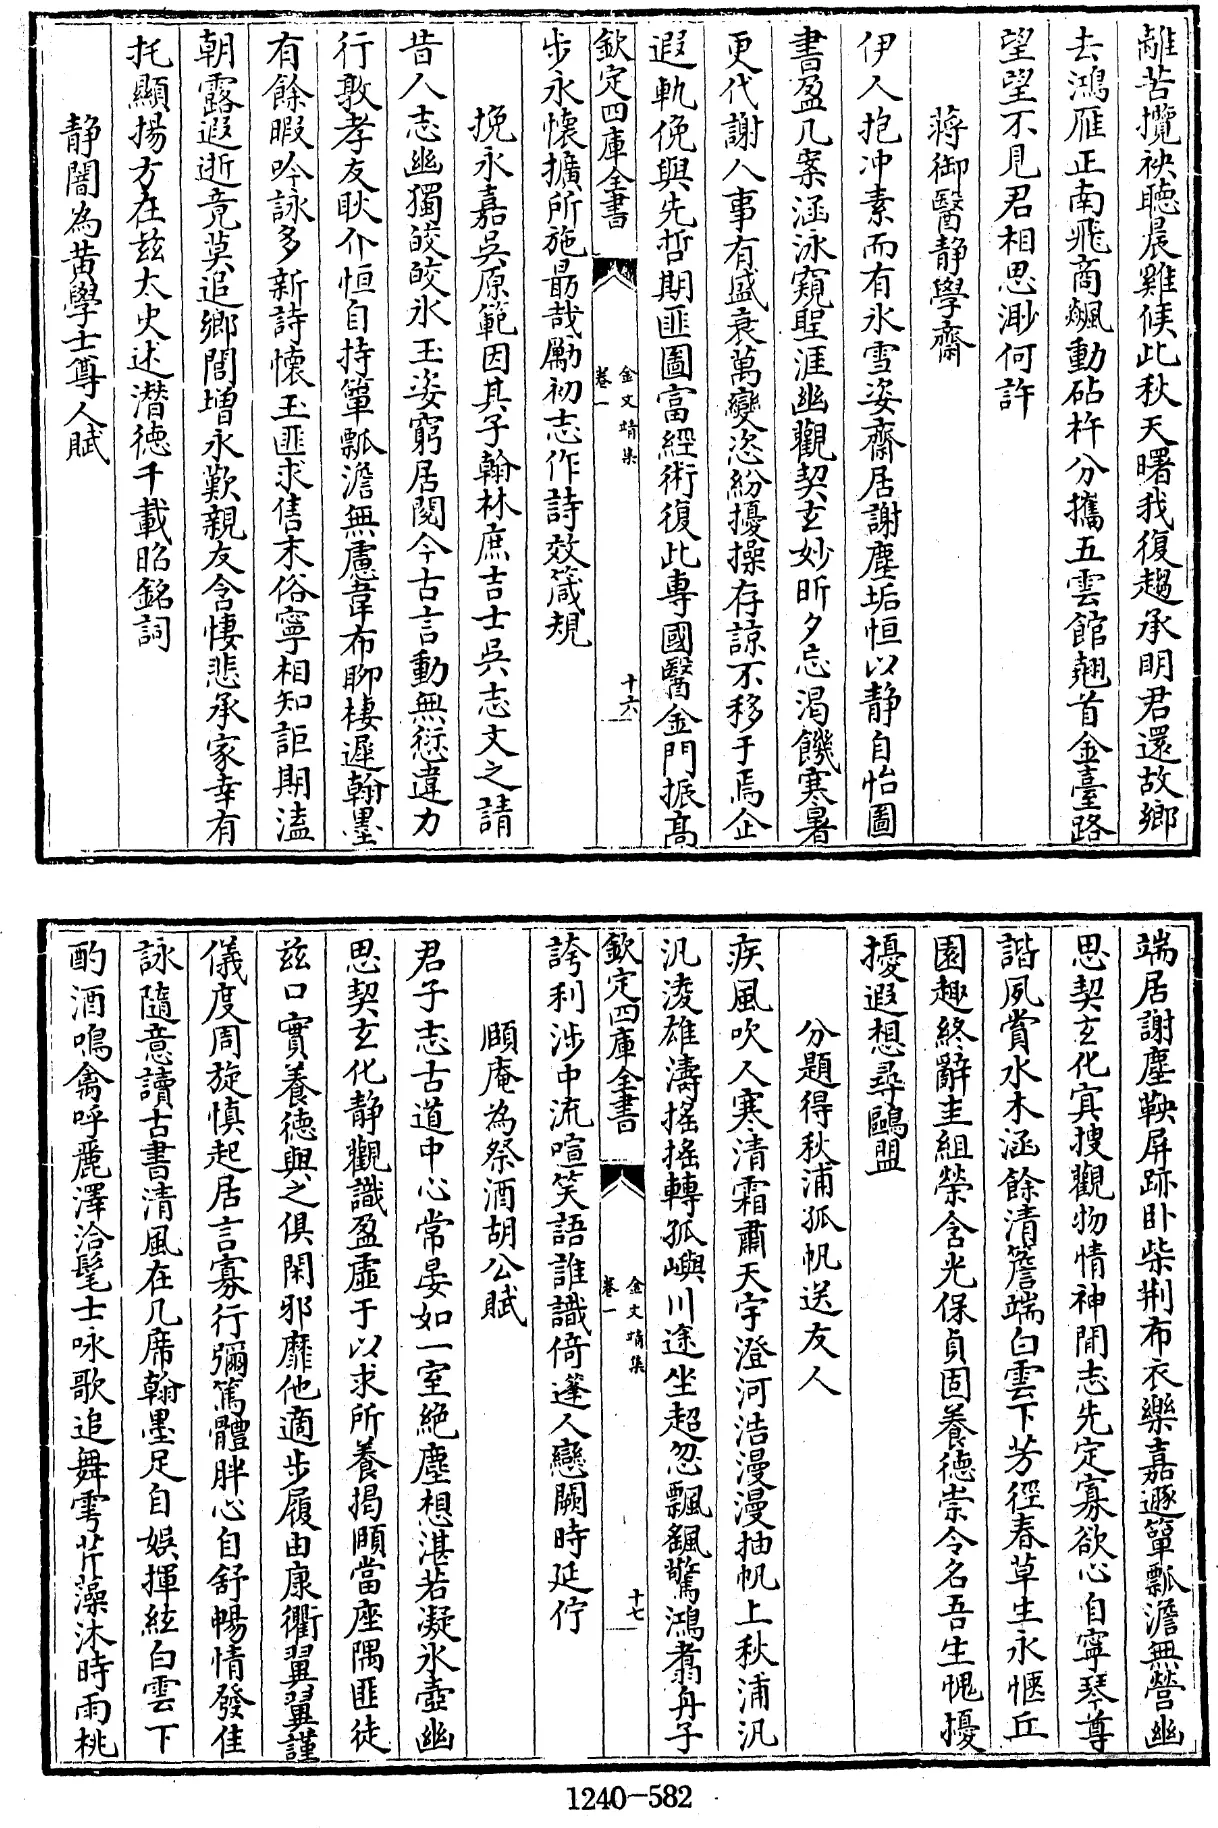 離苦攬袂聽晨雞候此秋天曙我復趨承明君還故鄉
去鴻雁正南飛商飈動砧杵分攜五雲館翹首金臺路
望望不見君相思渺何許
蔣御醫静學齋
伊人抱冲素而有氷雪姿齋居謝塵垢恒以静自怡圖
書盈几案涵泳窺聖涯幽觀契玄妙昕夕忘渴饑寒暑
更代謝人事有盛衰萬變恣紛擾操存諒不移于焉企
遐軌俛與先哲期匪圖富經術復此專國醫金門振高
欽定四庫全書
金文靖集
卷一
十六
步永懷擴所施勗哉勵初志作詩效箴規
挽永嘉吳原範因其子翰林庶吉士吳志文之請
昔人志幽獨皎皎氷玉姿窮居閱今古言動無愆違力
行敦孝友耿介恒自持簞瓢澹無慮韋布聊棲遲翰墨
有餘暇吟詠多新詩懷玉匪求售末俗寧相知詎期溘
朝露遐逝竟莫追鄉閭增永歎親友含悽悲承家幸有
托顯揚方在兹太史述潛德千載昭銘詞
静闇為黄學士尊人賦
端居謝塵鞅屏跡卧柴荆布衣樂嘉遯簞瓢澹無營幽
思契玄化寘搜觀物情神閒志先定寡欲心自寧琴尊
諧夙賞水木涵餘清簷端白雲下芳徑春草生永愜丘
園趣終辭圭組榮含光保貞固養德崇令名吾生愧擾
擾遐想尋鷗盟
分題得秋浦孤帆送友人
疾風吹人寒清霜肅天宇澄河浩漫漫抽帆上秋浦汎
汎淩雄濤摇摇轉孤嶼川途坐超忽飄飈驚鴻翥舟子
欽定四庫全書
金文靖集
卷一
十七
誇利涉中流喧笑語誰識倚蓬人戀闕時延佇
頤庵為祭酒胡公賦
君子志古道中心常晏如一室絶塵想湛若凝氷壺幽
思契玄化静觀識盈虚于以求所養揭頤當座隅匪徒
兹口實養德與之俱閑邪靡他適步履由康衢翼翼謹
儀度周旋慎起居言寡行彌篤體胖心自舒暢情發佳
詠隨意讀古書清風在几席翰墨足自娱揮絃白雲下
酌酒鳴禽呼麗澤洽髦士咏歌追舞雩芹藻沐時雨桃
1240-582